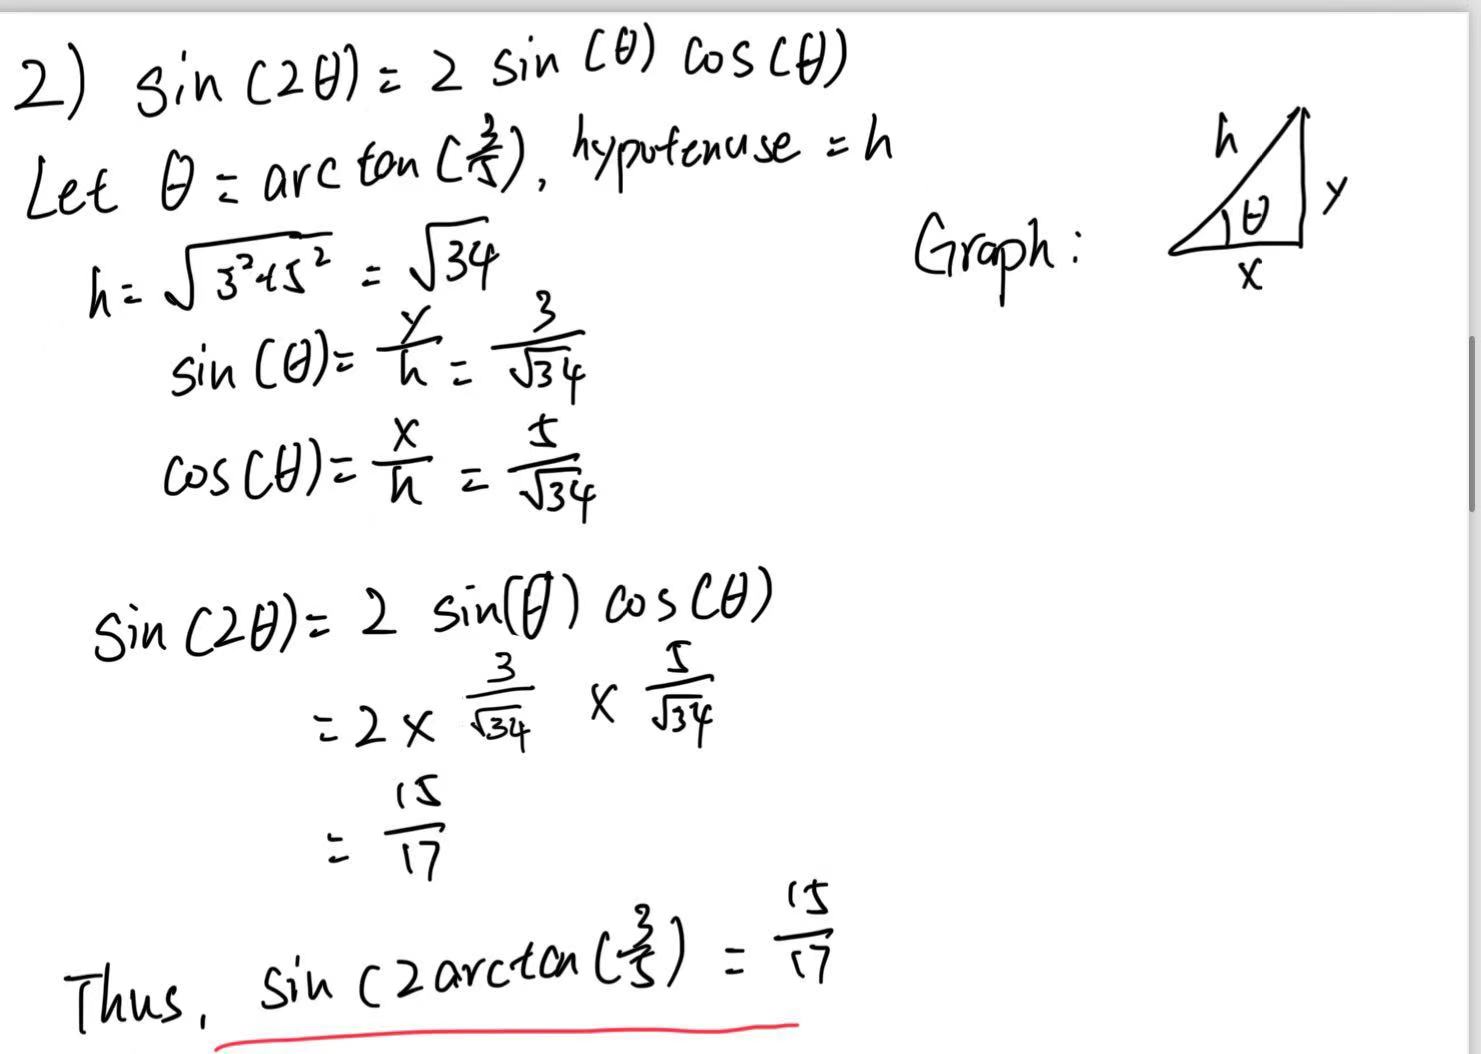 2) sin(2θ) = 2 sin(θ) cos(θ)
Let θ = arctan(3/5), hypotenuse = h
h = √(3²+5²) = √34
sin(θ) = y/h = 3/√34
cos(θ) = x/h = 5/√34
Graph:
h
θ
y
x
sin(2θ) = 2 sin(θ) cos(θ)
= 2 × 3/√34 × 5/√34
= 15/17
Thus, sin(2arctan(3/5)) = 15/17